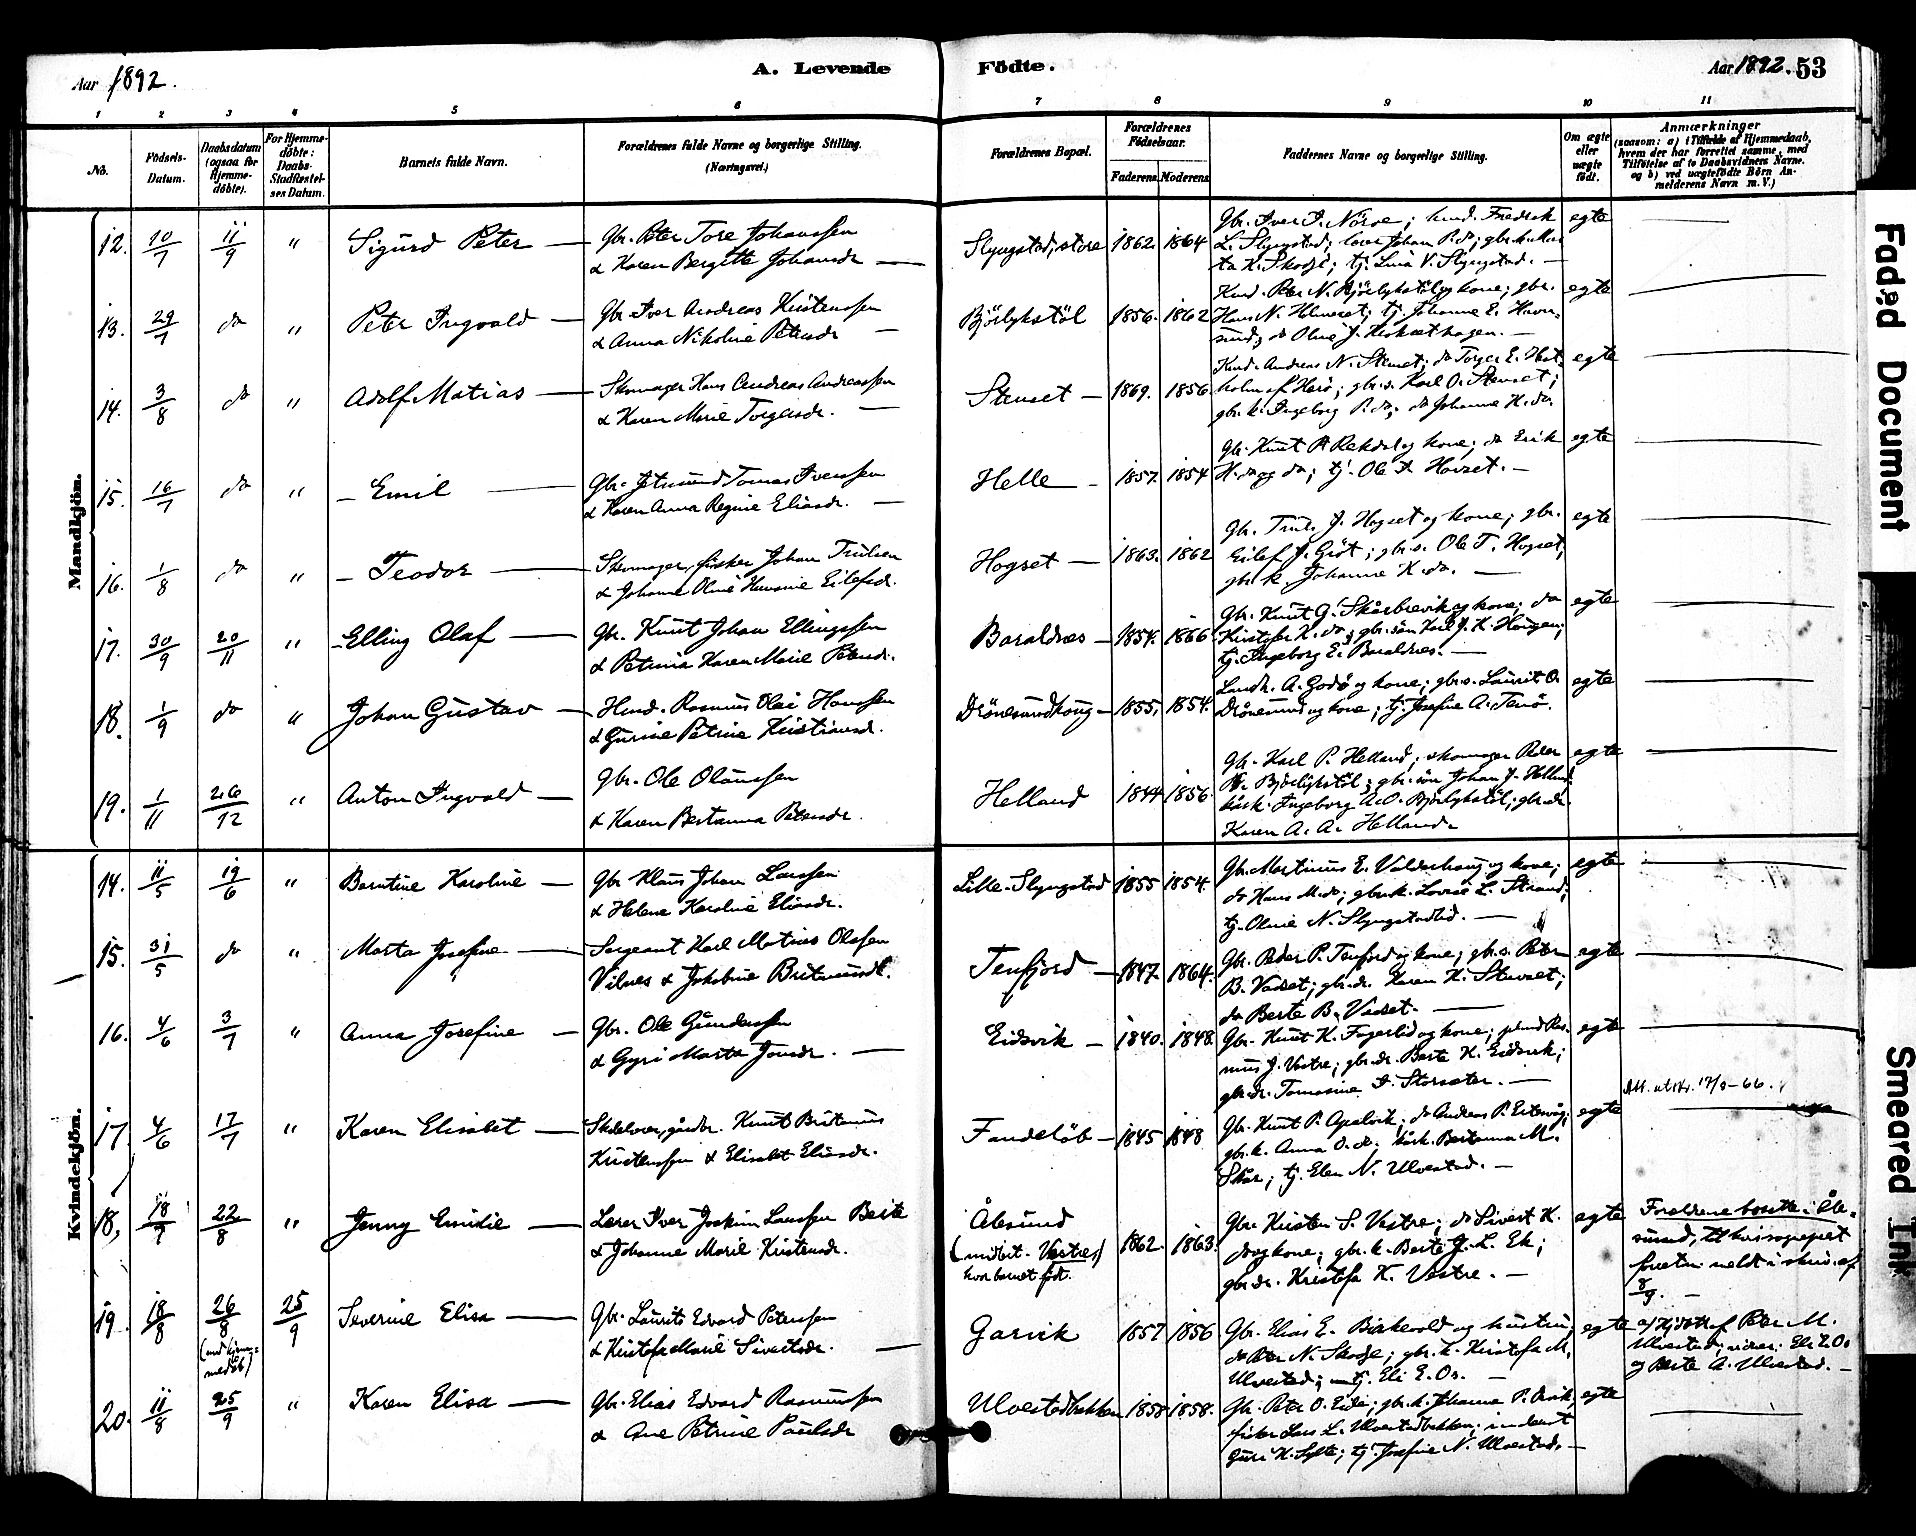 Aar 1892.
A. Levende
Födte.
Aar 1892. 53
1 2 3 4 5 6 7 8 9 10 11
No.
Födsels-Datum.
Daabsdatum (ogsaa for Hjemme-döbte).
For Hjemme-döbte: Daabs-Stadfæstel-ses Datum.
Barnets fulde Navn.
Forældrenes fulde Navne og borgerlige Stilling.
(Næringsvei.)
Forældrenes Bopæl.
Forældrenes Födselsaar.
Faderens. Moderens.
Faddernes Navne og borgerlige Stilling.
Om ægte eller uægte födt.
Anmærkninger
(saasom: a) i Tilfælde af Hjemmedaab, hvem der har forrettet samme, med Tilföielse af to Daabsvidners Navne. og b) ved uægtefödte Börn An-melderens Navn m. V.)
Mandkjön.
12. 10/7 11/9 " Sigurd Peter —
Gbr. Peter Tore Johanssen
& Karen Bergitte Johansdr. —
Slyngstad, store 1862. 1864
Gbr. Iver I. Nörve; kmd. Fredrik
L. Slyngstad; Johan P. do; gbr.k. Mar-
ta K. Skodje; tj. Lina V. Slyngstad. —
egte
13. 29/7 do " Peter Ingvald —
Gbr. Iver Andreas Kristenssen
& Anna Nikoline Petersdr. —
Björlykstöl 1856. 1862
Kmd. Peter N. Björlykstöl og kone; gbr.
Hans N. Helmeset; tj. Johanne E. Havn-
sund; do Oline J.
egte
14. 3/8 do " Adolf Matias —
Skomager Hans Andreas Andreassen
& Karen Marie Torgersdr. —
Stenset — 1869. 1856
Kmd. Andreas N. Stenset; do Torger E.
holm af Harö; gbr.s. Karl O. Stenset;
gbr.k. Ingeborg P. do; do Johanne H. do.
egte
15. 16/7 do " — Emil —
Gbr. Jetmund Tomas Ivenssen
& Karen Anna Regine Eliasdr. —
Helle — 1857. 1854
Gbr. Knut P. Rekdal og kone; do Erik
H. do og do; tj. Ole A. Hovset. —
egte
16. 1/8 do " — Teodor —
Skomager, fisker Johan Trulsen
& Johanne Oline Hansine Eilefsd.
Hogset — 1863. 1862
Gbr. Truls J. Hogset og kone; gbr.
Eilef J. Gröt; gbr.s. Ole T. Hogset;
gbr.k. Johanne K. do. —
egte
17. 30/9 20/11 " — Elling Olaf —
Gbr. Knut Johan Ellingssen
& Petrina Karen Marie Petersdr.
Baraldsnes — 1854. 1866
Gbr. Knut G. Skårbrevik og kone; do
K. do; gbr. sön Karl J. K. Haugen;
tj. Ingeborg E. Baraldsnes. —
egte
18. 1/9 do " Johan Gustav —
Hmd. Rasmus Olai Hanssen
& Gurine Petrine Kristiansd.
Drönesundhaug — 1855. 1854.
Landh. A. Godö og kone; gbr.s. Laurit O.
Drönesund og kone; tj. Josefine A. Tenö.
egte
19. 1/11 26/12 " Anton Ingvald —
Gbr. Ole Olaussen
& Karen Bertanna Petersdr.
Helland 1844 1856.
Gbr. Karl P. Helland; skomager Peder
W. Björlykstöl; gbr. sön Johan J. Helland;
Ingeborg A.O. Björlykstöl; gbr.dr.
Karen A. A. Helland.
egte
Kvindekjön.
14. 11/5 19/6 " Berntine Karoline —
Gbr. Klaus Johan Larssen
& Helene Karoline Eliasdr.
Lille-Slyngstad 1855 1854
Gbr. Martinus E. Valderhaug og kone;
do Hans M. do; gbr.k. Lovise L. Strand;
tj. Oline N. Slyngstadlid. —
egte
15. 31/5 do " Marta Josefine —
Sergeant Karl Matias Olafsen
Vilnes & Jakobine Britmundt.
Tenfjord — 1847. 1864.
Gbr. Peder P. Tenfjord og kone; gbr.s. Peter
B. Vadset; gbr.dr. Karen K. Stenset;
do Berte B. Vadset. —
egte
16. 4/6 3/7 " Anna Josefine —
Gbr. Ole Gunderssen
& Gyri Marta Jonsdr. —
Eidsvik — 1840. 1848.
Gbr. Knut K. Fagerlid og kone; Ras-
mus J. Vestre; gbr.dr. Berte K. Eidsvik;
gbr.dr. Tomasine I. Storsæter. —
egte
17. 4/6 17/7 " Karen Elisabet —
Skoleover, gårdbr. Knut Britanus
Kristenssen & Elisabet Eliasdr.
Fandelöb — 1845 1848
Gbr. Knut P. Apalvik; do Andreas P. Eidsvåg;
gbr.k. Anna O. do; Bertanna M.
Skår; tj. Elen N. Ulvestad. —
egte
Att. utst. 17/9-66.
18. 18/7 22/8 " Jenny Emilie —
Lærer Iver Joakim Larssen Beite
& Johanne Marie Kristensdr.
Ålesund
(midlert. Vestre,)
hvor barnet födt.
1862. 1863.
Gbr. Kristen S. Vestre; do Sivert K.
do og kone; gbr.k. Berte J. L. Ek;
gbr.dr. Kristofa K. Vestre. —
egte
Forældrene bosatte i Åle-
sund, til hvis sogneprest
företen meldt i skriv. af
8/9. —
19. 18/8 26/8 25/9 Severine Elisa —
(ved hjem-
medåb)
Gbr. Laurits Edvard Peterssen
& Kristofa Marie Sivertsdr. —
Garvik 1857 1856
Gbr. Elias E. Birkevold og hustru;
do Peter N. Skodje; gbr.k. Kristofa M.
Ulvestad; tj. Eli E. Os. —
egte
af Peter M.
Ulvestad; vidner: Eli E. Os
og Berte A. Ulvestad. —
20. 11/8 25/9 " Karen Elisa —
Gbr. Elias Edvard Rasmussen
& Ane Petrine Paulsdr
Ulvestadbakken 1858 1858.
Gbr. Peter O. Eide; gbr.k. Johanne P.
fisker Lars L. Ulvestadbakken; inderst
Guri K. Sylte; tj. Josefine N. Ulvestad. —
egte
Faded Document
Smeared Ink